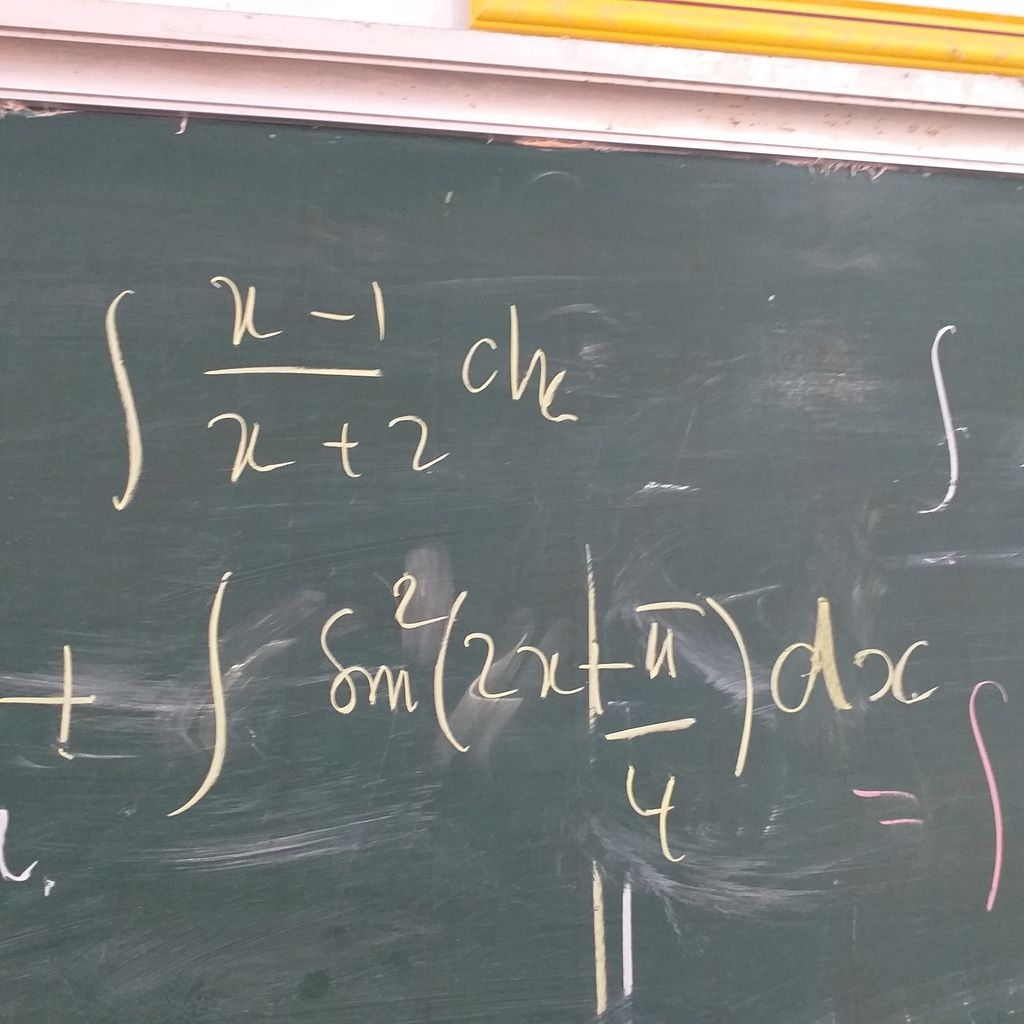 ∫ x-1/x+2 dx ∫
+ ∫ sin²(2x+π/4) dx
= ∫